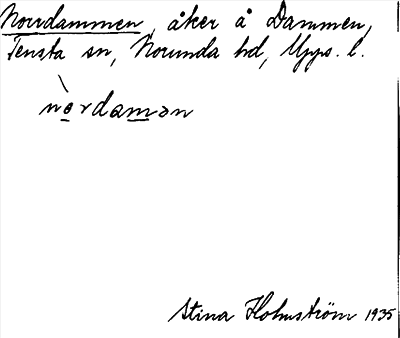 Norrdammen, åker å Dammen,
Tensta sn, Norunda hd, Upps. l.
nòrdamən
Stina Holmström 1935